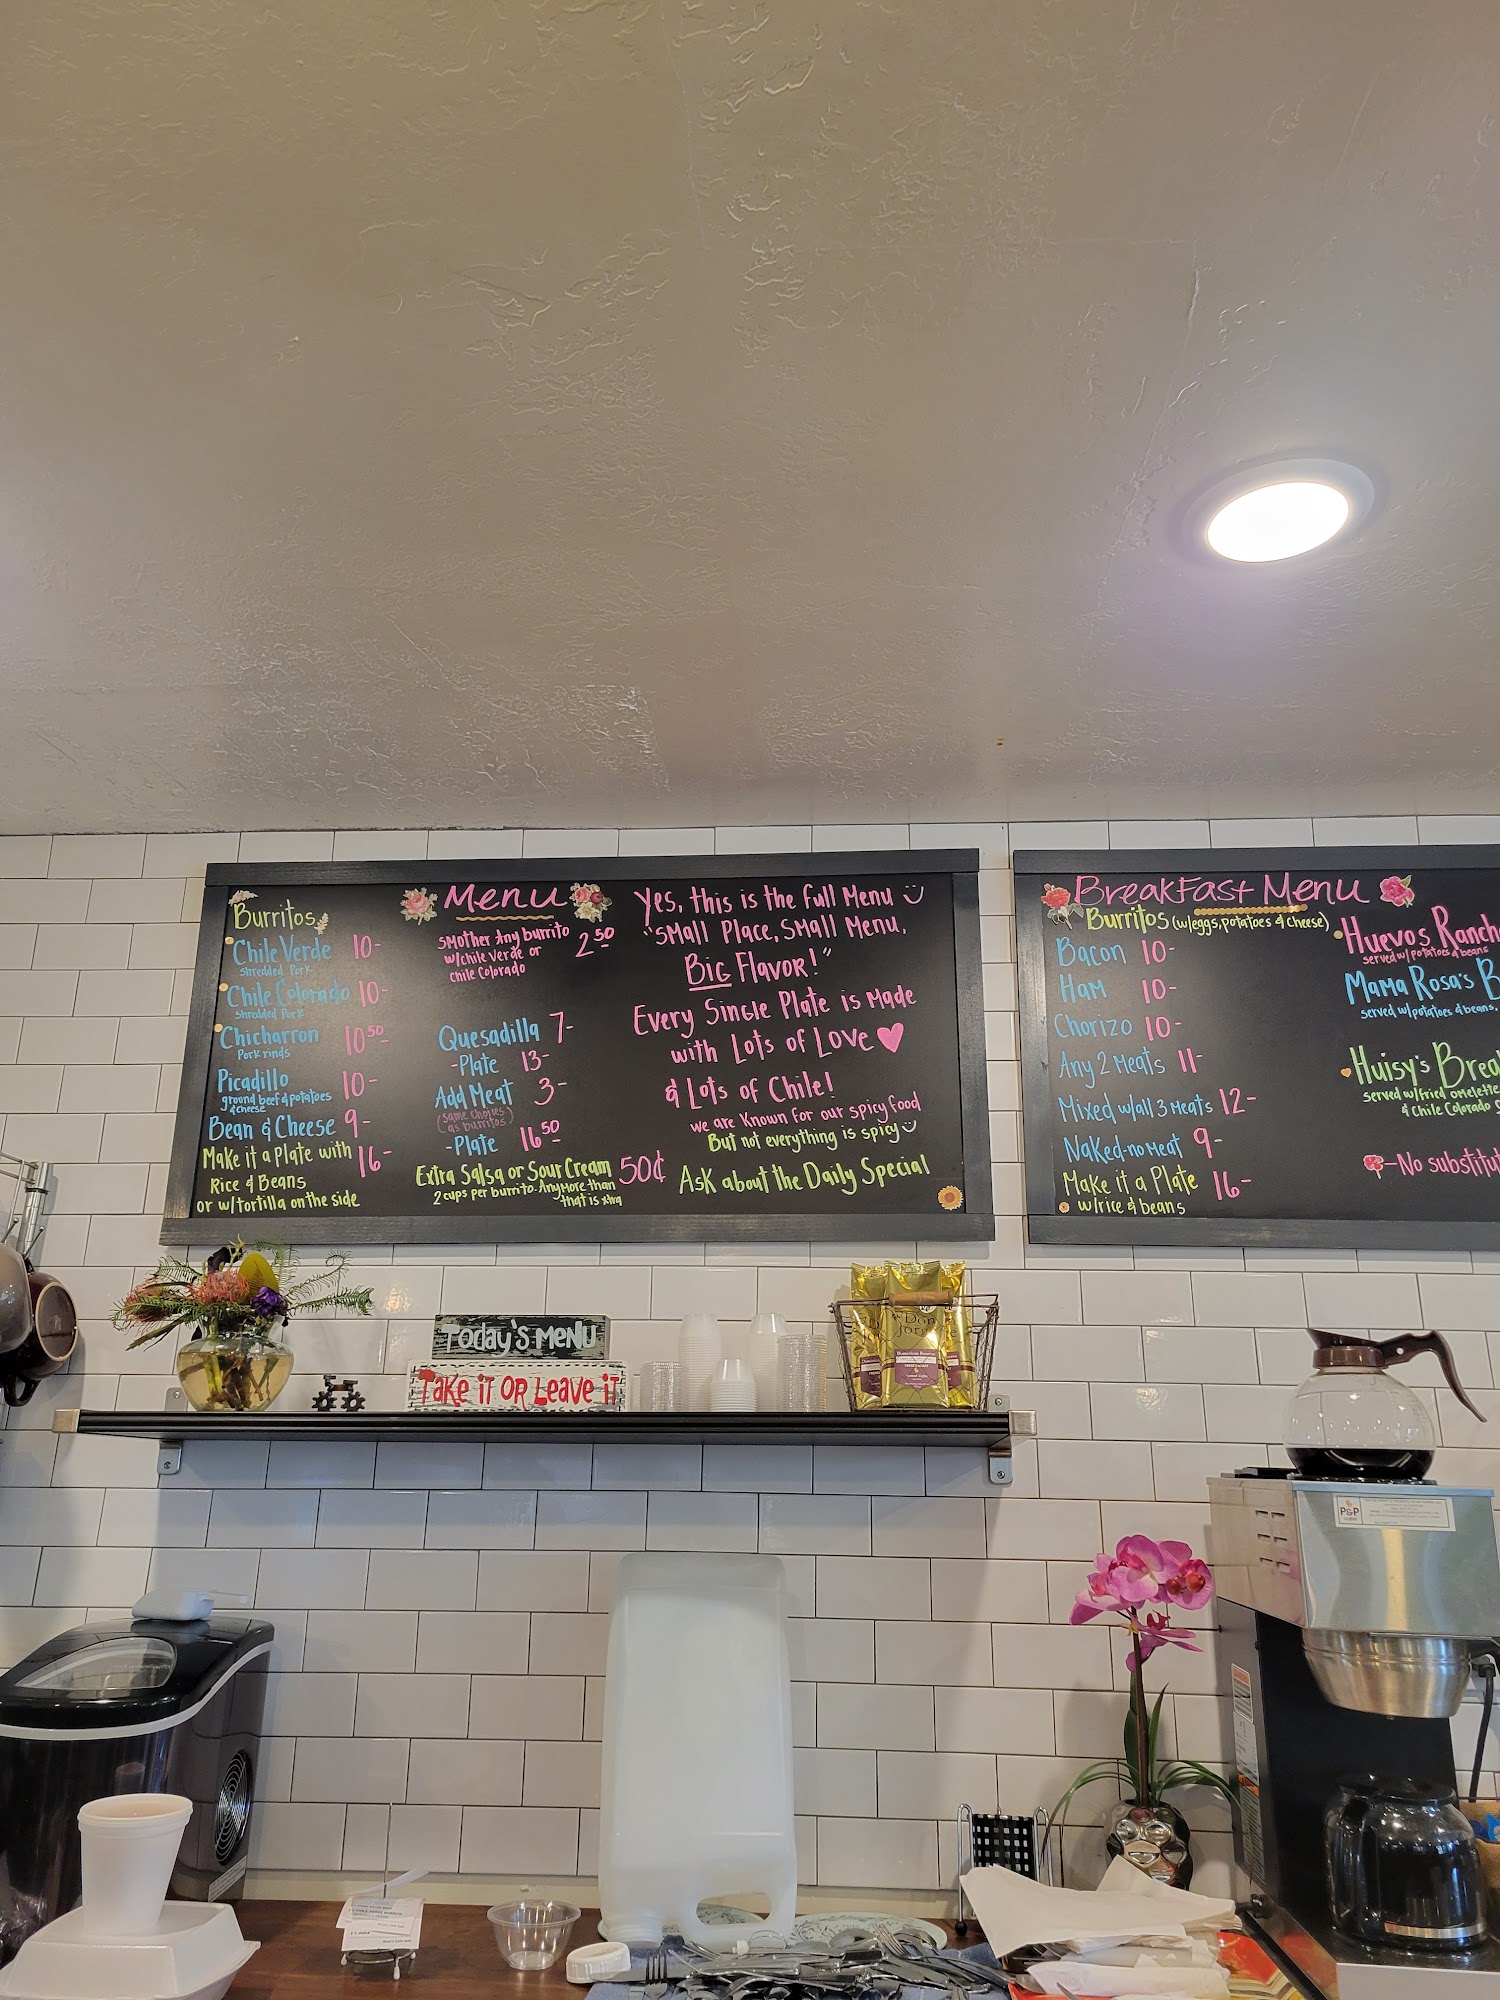 Menu
Burritos
Chile Verde 10-
Shredded Pork
Chile Colorado 10-
Shredded Pork
Chicharron 10 50
Pork rinds
Picadillo 10-
ground beef & potatoes
& cheese
Bean & Cheese 9-
Make it a Plate with 16-
Rice & Beans
or w/ tortilla on the side
Smother Any burrito 2 50
w/chile Verde or
chile Colorado
Quesadilla 7-
-Plate 13-
Add Meat 3-
(same choices
as burritos)
-Plate 16 50
Extra Salsa or Sour Cream 50¢
2 cups per burrito. Any more than
that is xtra
Yes, this is the full Menu
"Small Place, Small Menu,
Big Flavor!"
Every Single Plate is Made
with Lots of Love
& Lots of Chile!
we are Known for our spicy food
But not everything is spicy
Ask about the Daily Special
BreakFast Menu
Burritos (w/eggs, potatoes & cheese)
Bacon 10-
Ham 10-
Chorizo 10-
Any 2 Meats 11-
Mixed w/all 3 Meats 12-
Naked-no meat 9-
Make it a Plate 16-
w/rice & beans
Huevos Ranch
served w/potatoes & beans
Mama Rosa's B
served w/potatoes & beans,
Huisy's Brea
served w/fried omelette
& Chile Colorado
-No substitut
Today's Menu
Take it or Leave it
Don
Jorge
P&P